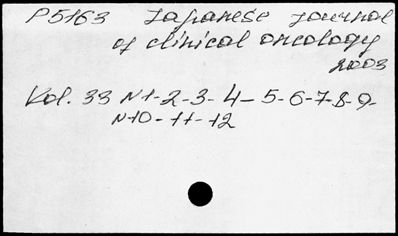 P5163 Japanese Journal
of clinical oncology
2003
Vol. 33 N1-2-3-4-5-6-7-8-9-
N10-11-12